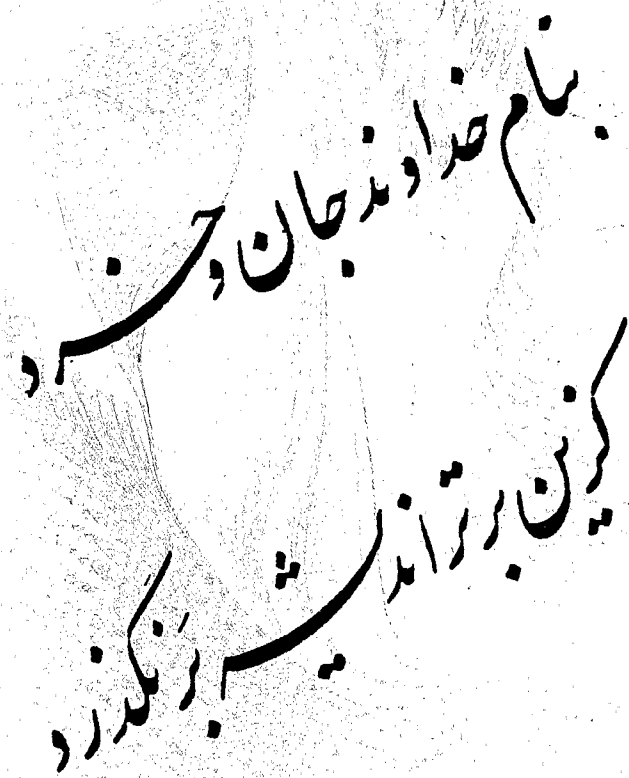 بنام خداوند جان و خرد
کزین برتر اندیشه بَر نگذرد